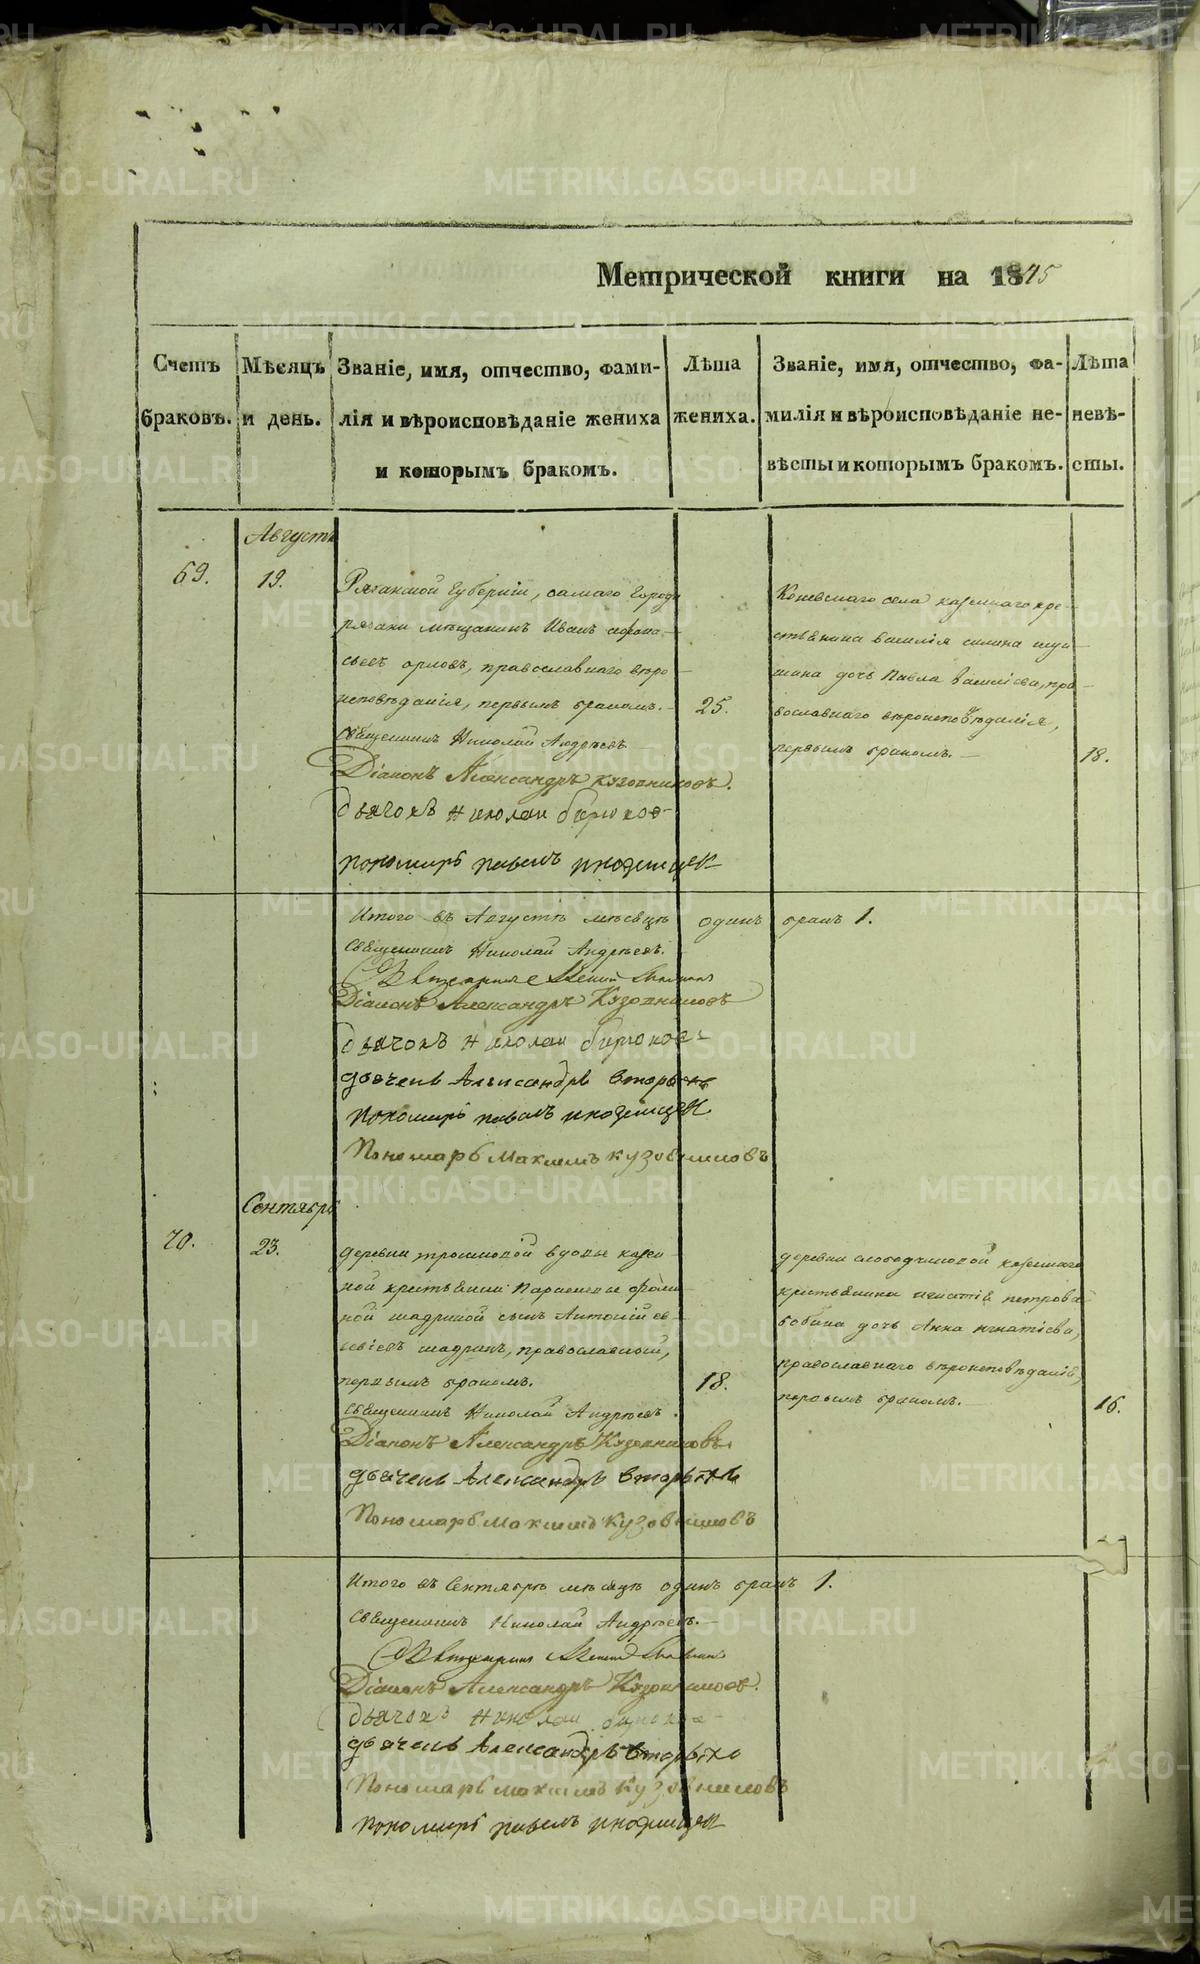 Метрической книги на 1845
Счетъ браковъ.
Мѣсяцъ и день.
Званіе, имя, отчество, фами-
лія и вѣроисповѣданіе жениха
и которымъ бракомъ.
Лѣта жениха.
Званіе, имя, отчество, фа-
милія и вѣроисповѣданіе не-
вѣсты и которымъ бракомъ.
Лѣта невѣ-
сты.
Августъ
69.
19.
Рязанской Губерніи, самаго Города
рязани мѣщанинъ Иванъ афона-
сьевъ орловъ, православнаго вѣро-
исповѣданія, первымъ бракомъ.
25.
Священникъ Николай Андреевъ
Діаконъ Александръ Кузовниковъ.
дьячокъ Николаи бирюков
пономарь павелъ иноземцев
Коневскаго села казеннаго кре-
стьянина василія силина
дочь Павла васи́лева, пра-
вославнаго вѣроисповѣданія,
первымъ бракомъ.
18.
Итого въ Августѣ мѣсяцѣ одинъ бракъ 1.
Священникъ Николай Андреевъ.
Священникъ
Діаконъ Александръ Кузовниковъ
дьячокъ Николаи бирюков
дьячекъ Александръ вторыхъ
пономарь павелъ иноземцев
Пономарь Максимъ Кузовниковъ
Сентябрь
70.
23.
деревни трошковой вдовы казен-
ной крестьянки Парасковьи
ной шадриной сынъ Антоній ев-
шадринъ, православной,
первымъ бракомъ.
18.
Священникъ Николай Андреевъ.
Діаконъ Александръ Кузовниковъ
дьячекъ Александръ вторыхъ
Пономарь Максимъ Кузовниковъ
деревни слободчиковой казеннаго
крестьянина игнатія петрова
бабина дочь Анна игнатіева,
православнаго вѣроисповѣданія,
первымъ бракомъ.
16.
Итого въ Сентябрѣ мѣсяцѣ одинъ бракъ 1.
Священникъ Николай Андреевъ.
Священникъ
Діаконъ Александръ Кузовниковъ.
дьячокъ Николаи бирюков
дьячекъ Александръ вторыхъ
Пономарь Максимъ Кузовниковъ
пономарь павелъ иноземцев
METRIKI.GASO-URAL.RU